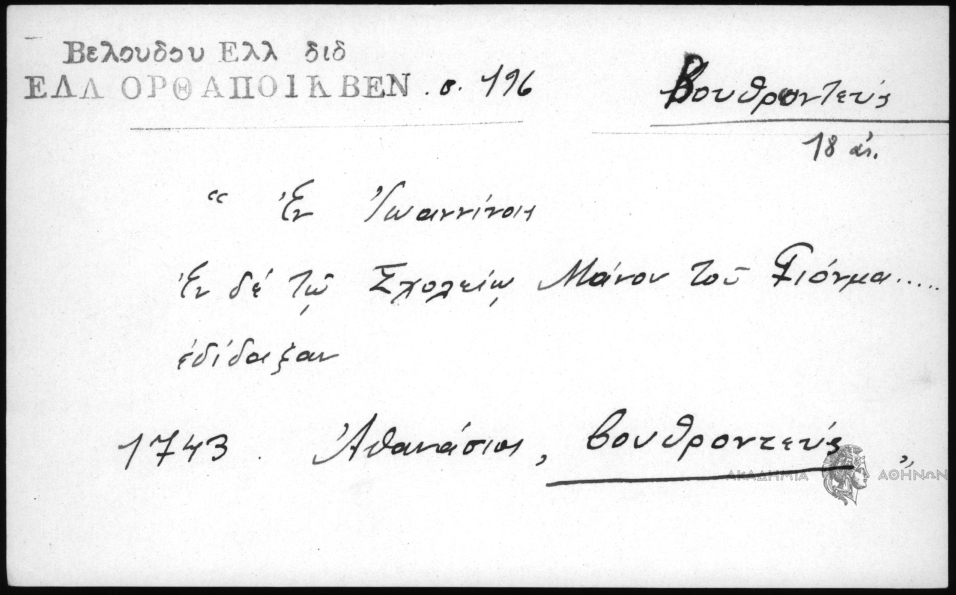 Βελουδου Ελλ διδ
ΕΛΛ ΟΡΘ ΑΠΟΙΚ ΒΕΝ . σ. 196
Βουθροντεύς
18 αἰ.
“ Ἐν Ἰωαννίνοις
Ἐν δέ τῷ Σχολείῳ Μάνου τοῦ Γιόνμα.....
ἐδίδαξαν
1743 . Ἀθανάσιος, Βουθροντεύς ,,
ΑΚΑΔΗΜΙΑ ΑΘΗΝΩΝ